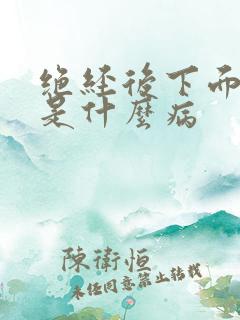 绝經後下而
是什麼病
陳衛恒
未经同意禁止转载